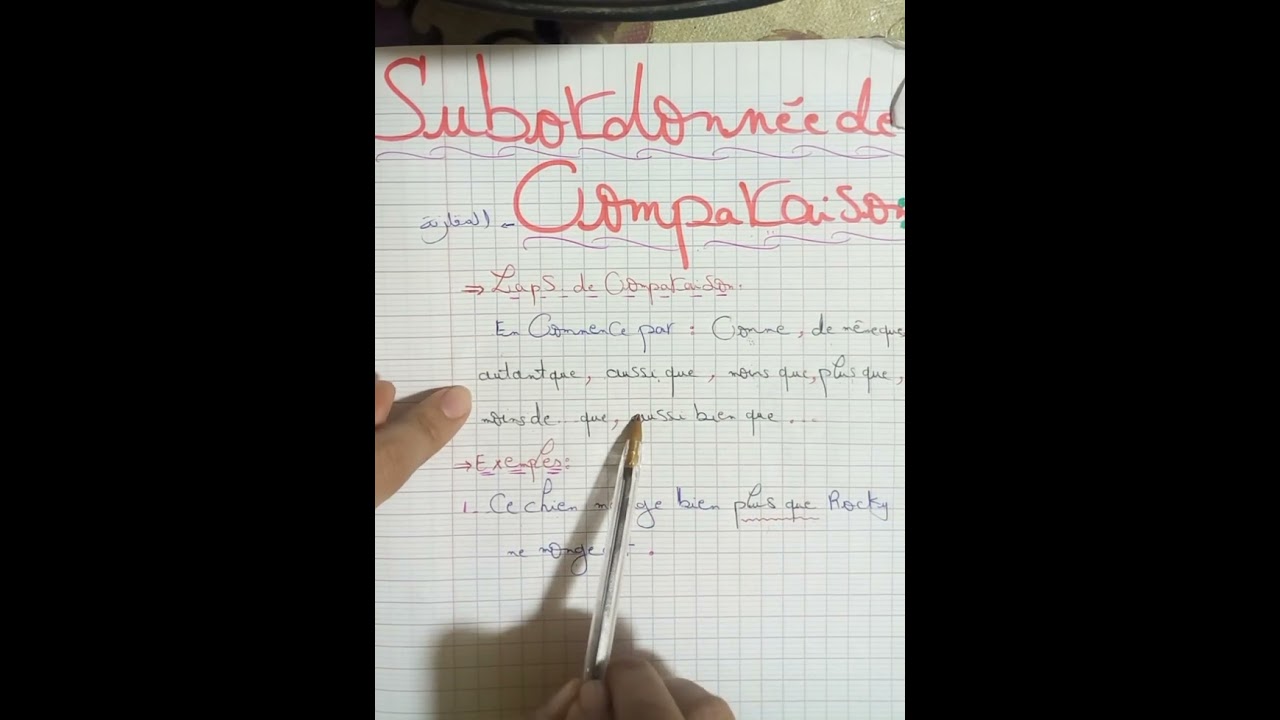 Subordonnée de
Comparaison
المقارنة -
⇒ Laps de Comparaison.
En Commence par : Comme, de même que
autant que, aussi que, moins que, plus que,
moins de.. que, aussi bien que ...
⇒ Exemples:
1. Ce chien ge bien plus que Rocky
ne